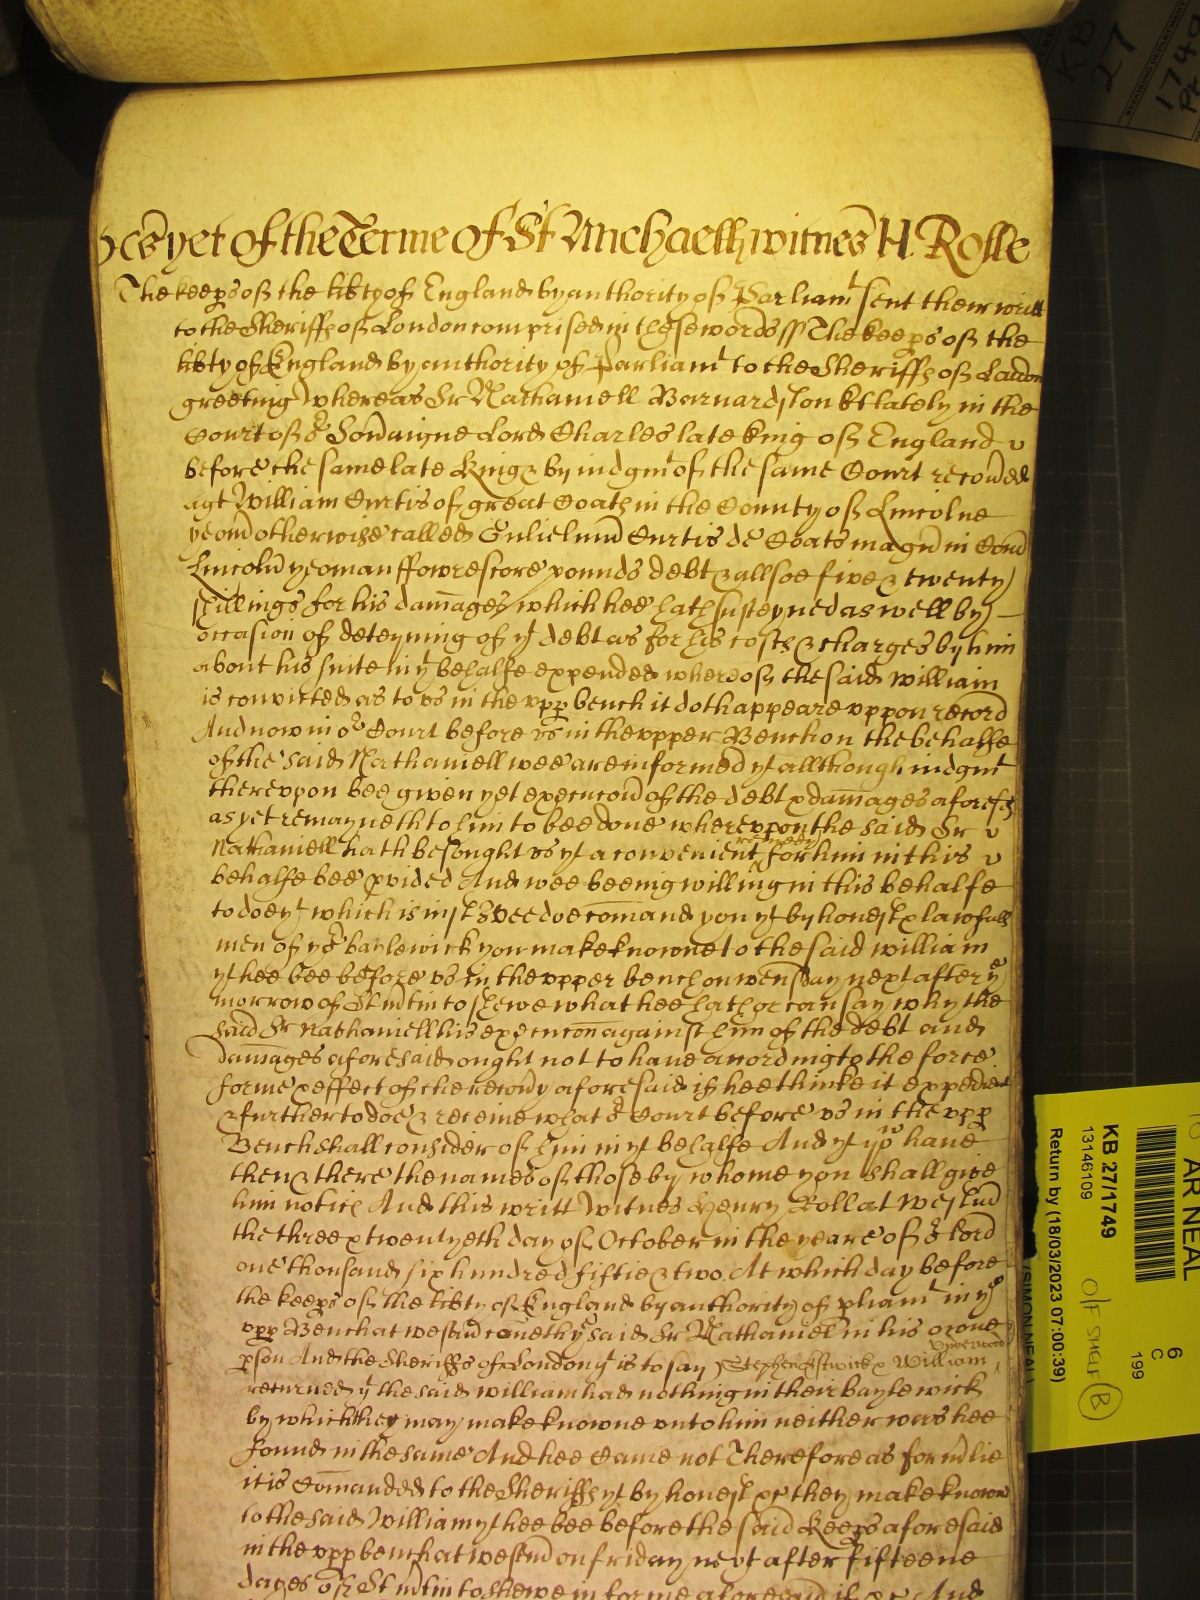 as yet of the Terme of St Michaell witnes H. Rolle
The keeps of the libty of England by authority of Parliamt sent their writt
to the Sheriffs of London comprised in these words ss The keeps of the
libty of England by authority of Parliamt to the Sheriffs of London
greeting Whereas Sr Nathaniell Barnardiston kt lately in the
Court of or Soveraigne Lord Charles late king of England
before the same late King & by iudgmt of the same Court recovered
agt William Curtis of great Coats in the County of Lincolne
yeom otherwise called Gulielmu Curtis de Coats magn in Com
Lincoln yeoman ffowrescore pounds debt & allsoe five & twenty
shillings for his damages which hee hath susteyned as well by
occasion of deteyning of yt debt as for his costs & charges by him
about his suite in yt behalfe expended whereof the said William
is convicted as to us in the vpp bench it doth appeare vppon record
And now in or Court before vs in the vpper Bench on the behalfe
of the said Nathaniell wee are informed yt allthough iudgmt
therevpon bee given yet execucon of the debt & damages aforesd
as yet remayneth to him to bee done wherevpon the said Sr
Nathaniell hath besought vs yt a convenient remedy for him in this
behalfe bee pvided And wee beeing willing in this behalfe
to doe yt which is iust Wee doe comand you yt by honest & lawfull
men of yor baylewick you make knowne to the said William
yt hee bee before vs in the vpper bench on wensday next after ye
morrow of St Mtin to shewe what hee hath or can say why the
said Sr Nathaniell his execucon against him of the debt and
damages aforesaid ought not to have according to the force
forme & effect of the recovy aforesaid if hee thinke it expedient
& further to doe & receive what or Court before vs in the vpp
Bench shall consider of him in yt behalfe And yt you have
then & there the names of those by whome you shall give
him notice And this writt Witnes Henry Roll at Westm
the three & twentyeth day of October in the yeare of or lord
one thousand six hundred fiftie & two. At which day before
the keeps of the libty of England by authority of pliamt in ye
vpp Bench at westm cometh ye said Sr Nathaniel in his owne
pson And the Sheriffs of London yt is to say Stephen Estwick & William Vnderwood
returned yt the said William had nothing in their baylewick
by which they may make knowne vnto him neither was hee
found in the same And hee Came not Therefore as formlie
it is Comanded to the Sheriffs yt by honest &c they make knowne
to the said William yt hee bee before the said Keeps aforesaid
in the vpp bench at westm on friday next after fifteene
dayes of St Mtin to shewe in forme aforesaid if &c And
KB 27/1749
13146109
Return by (18/03/2023 07:00:39)
(SIMON NEAL)
AR NEAL
O/F SHELF B
6
C
199
KB
27